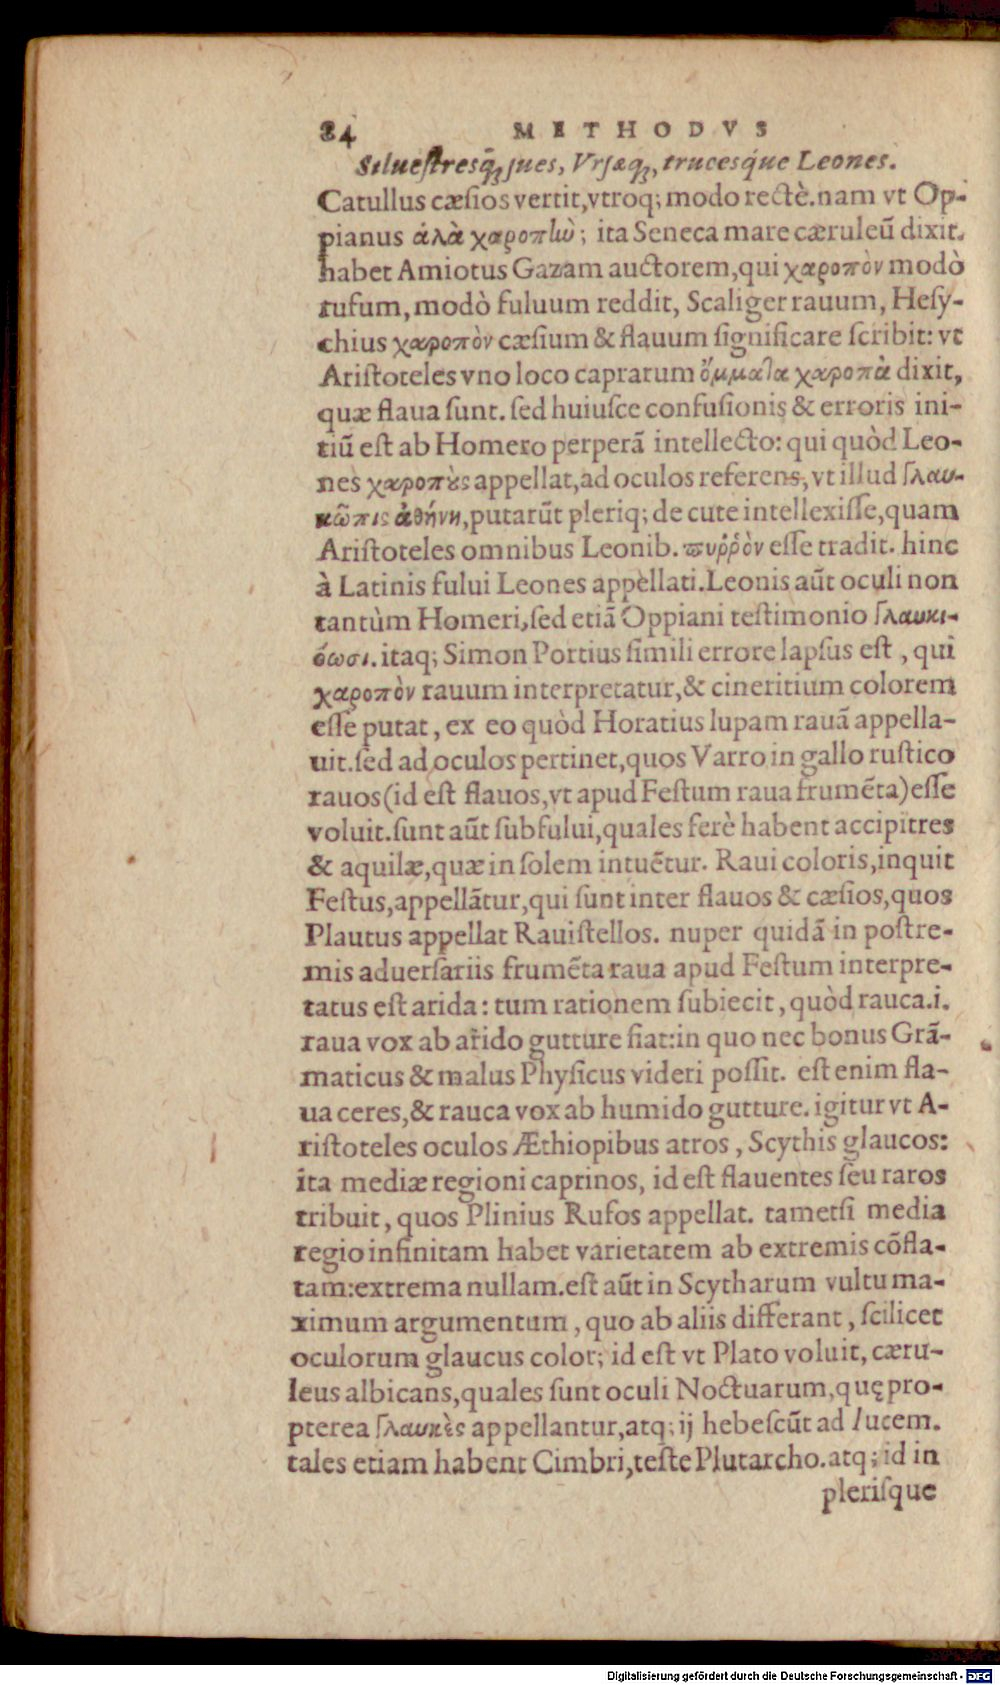 84 METHODVS
Silueſtresq́ꝫ ſues, Vrſæq́ꝫ, trucesq́ue Leones.
Catullus cæſios vertit,vtroq; modo rectè.nam vt Op-
pianus ἁλὰ χαροπὼ; ita Seneca mare cæruleũ dixit.
habet Amiotus Gazam auctorem,qui χαροπὸν modò
rufum, modò fuluum reddit, Scaliger rauum, Heſy-
chius χαροπὸν cæſium & flauum ſignificare ſcribit: vt
Ariſtoteles vno loco caprarum ὄμματα χαροπὰ dixit,
quæ flaua ſunt. ſed huiuſce confuſionis & erroris ini-
tiũ eſt ab Homero perperã intellecto: qui quòd Leo-
nes χαροποὺς appellat,ad oculos referens, vt illud γλαυ-
κῶπις ἀθήνη,putarũt pleriq; de cute intellexiſſe,quam
Ariſtoteles omnibus Leonib. πυῤῥὸν eſſe tradit. hinc
à Latinis fului Leones appellati.Leonis aũt oculi non
tantùm Homeri,ſed etiã Oppiani teſtimonio γλαυκι-
όωσι.itaq; Simon Portius ſimili errore lapſus eſt , qui
χαροπὸν rauum interpretatur,& cineritium colorem
eſſe putat , ex eo quòd Horatius lupam rauã appella-
uit.ſed ad oculos pertinet,quos Varro in gallo ruſtico
rauos(id eſt flauos,vt apud Feſtum raua frumẽta)eſſe
voluit.ſunt aũt ſubfului,quales ferè habent accipitres
& aquilæ,quæ in ſolem intuẽtur. Raui coloris,inquit
Feſtus,appellãtur,qui ſunt inter flauos & cæſios,quos
Plautus appellat Rauiſtellos. nuper quidã in poſtre-
mis aduerſariis frumẽta raua apud Feſtum interpre-
tatus eſt arida: tum rationem ſubiecit , quòd rauca.i.
raua vox ab arido gutture fiat:in quo nec bonus Grã-
maticus & malus Phyſicus videri poſſit. eſt enim fla-
ua ceres,& rauca vox ab humido gutture. igitur vt A-
riſtoteles oculos Æthiopibus atros , Scythis glaucos:
ita mediæ regioni caprinos, id eſt flauentes ſeu raros
tribuit, quos Plinius Rufos appellat. tametſi media
regio infinitam habet varietatem ab extremis cõfla-
tam:extrema nullam.eſt aũt in Scytharum vultu ma-
ximum argumentum , quo ab aliis differant , ſcilicet
oculorum glaucus color; id eſt vt Plato voluit, cæru-
leus albicans,quales ſunt oculi Noctuarum,quę pro-
pterea γλαυκὲς appellantur,atq; ij hebeſcũt ad lucem.
tales etiam habent Cimbri,teſte Plutarcho.atq; id in
pleriſque
Digitalisierung gefördert durch die Deutsche Forschungsgemeinschaft - DFG